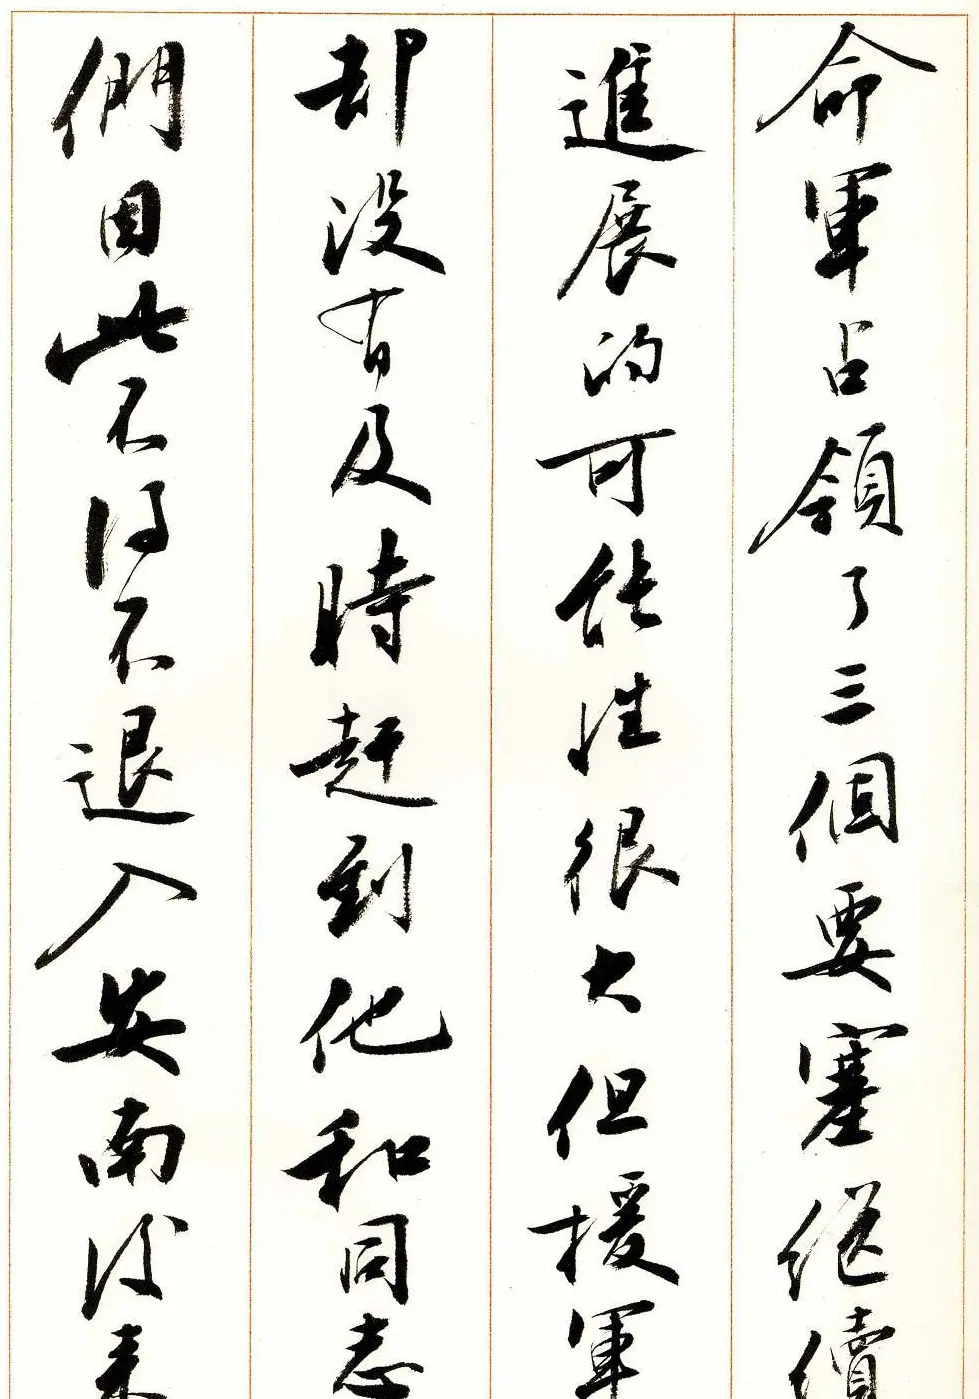 命軍占領了三個要塞繼續
進展的可能性很大但援軍
却没有及時趕到他和同志
們因此不得不退入安南後来